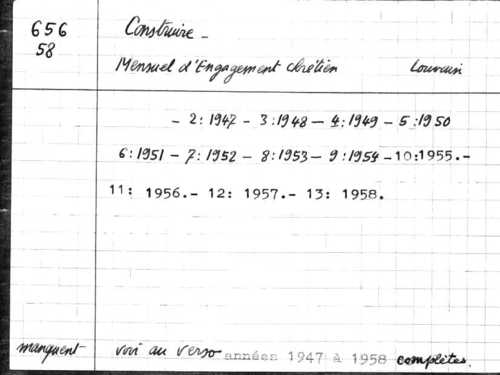 656
58
Construire -
Mensuel d'Engagement chrétien Louvain
- 2:1947 - 3:1948 - 4:1949 - 5:1950
6:1951 - 7:1952 - 8:1953 - 9:1954 - 10:1955.-
11: 1956.- 12: 1957.- 13: 1958.
manquent voir au verso années 1947 à 1958 complètes.